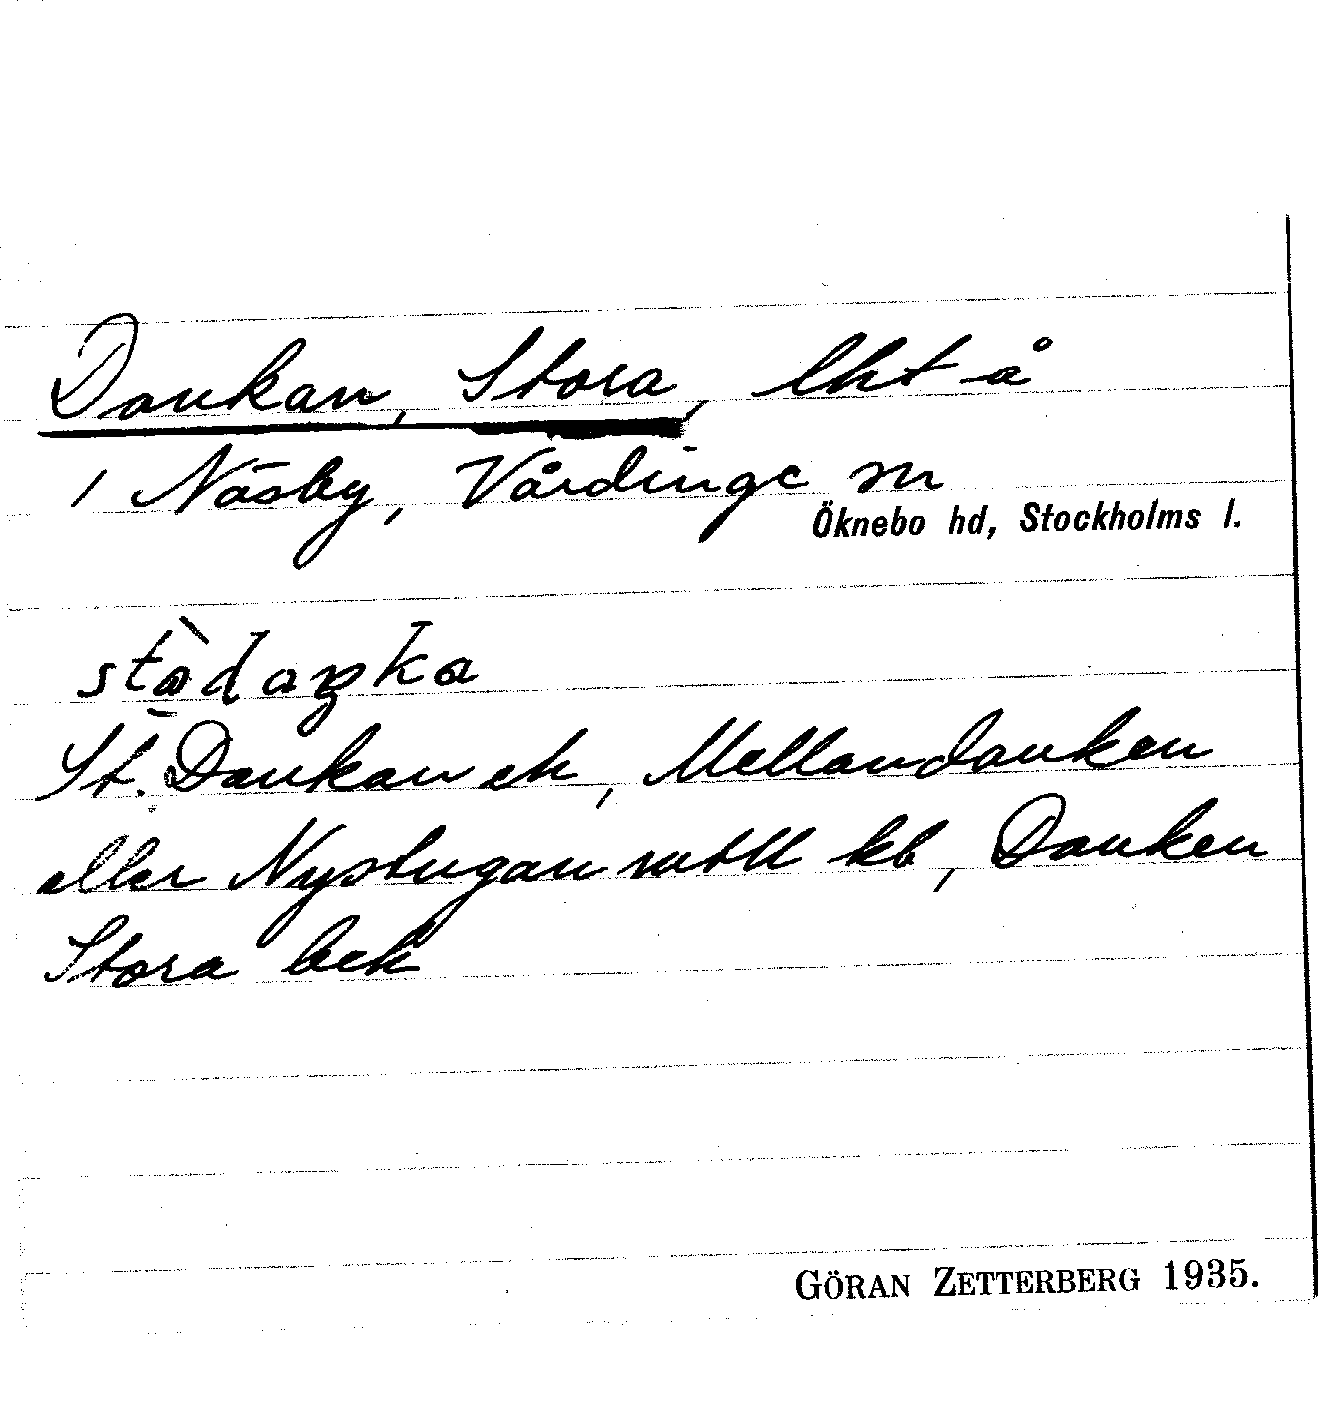 Dankan, Stora, lht å
1 Näsby, Vårdinge sn
Öknebo hd, Stockholms l.
stòdaŋka
St. Dankan ek, Mellandanken
eller Nystugan
kb, Danken
Stora bek
GÖRAN ZETTERBERG 1935.